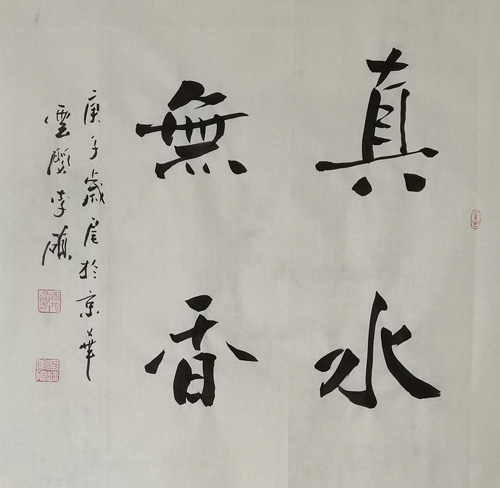 真水
無香
庚子歲尾於京華
雲龑李碩